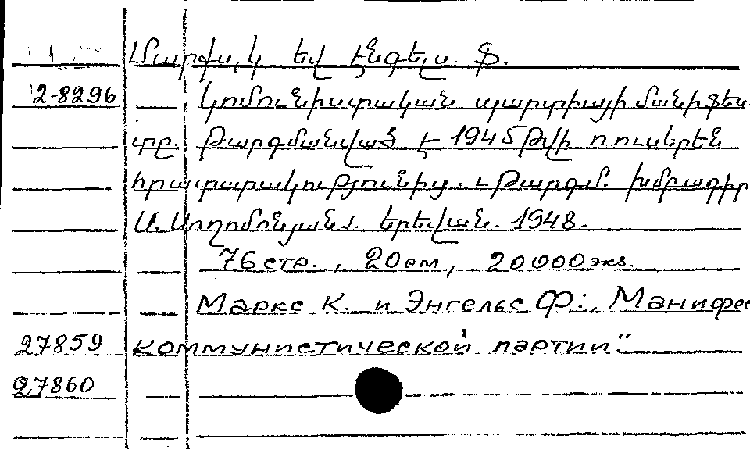 Մարքս, Կ եվ Էնգելս Ֆ.
2-8296 Կոմունիստական պարտիայի մանիֆես
տը. Թարգմանված է 1945 թվի ռուսերեն
հրատարակությունից. Թարգմ. խմբագիր
Ա. Սողոմոնյան. Երեվան. 1948.
76 стр., 20 см, 20000 экз.
Маркс К. и Энгельс Ф:, Манифес
27859 коммунистической партии"
27860